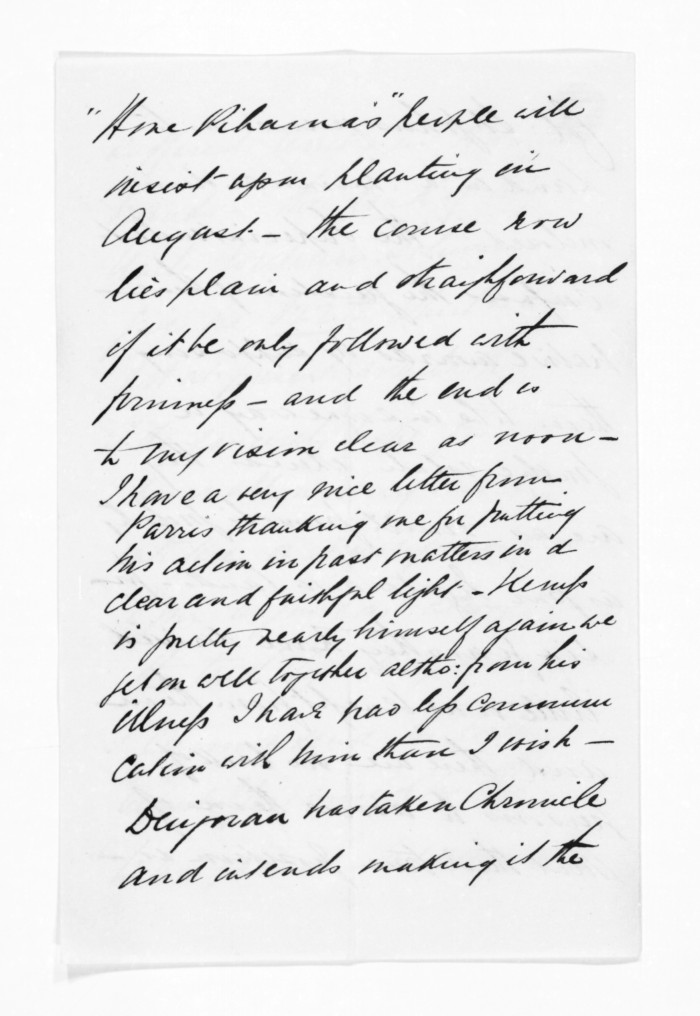 "Hone Pihama's" people will
insist upon planting in
August – the course now
lies plain and straighforward
if it be only followed with
firmness – and the end is
to my vision clear as noon –
I have a very nice letter from
Parris thanking me for putting
his action in past matters in a
clear and faithful light – Kemp
is pretty nearly himself again we
get on well together altho: from his
illness I have had less commun
cation with him than I wish –
has taken Chronicle
and intends making it the